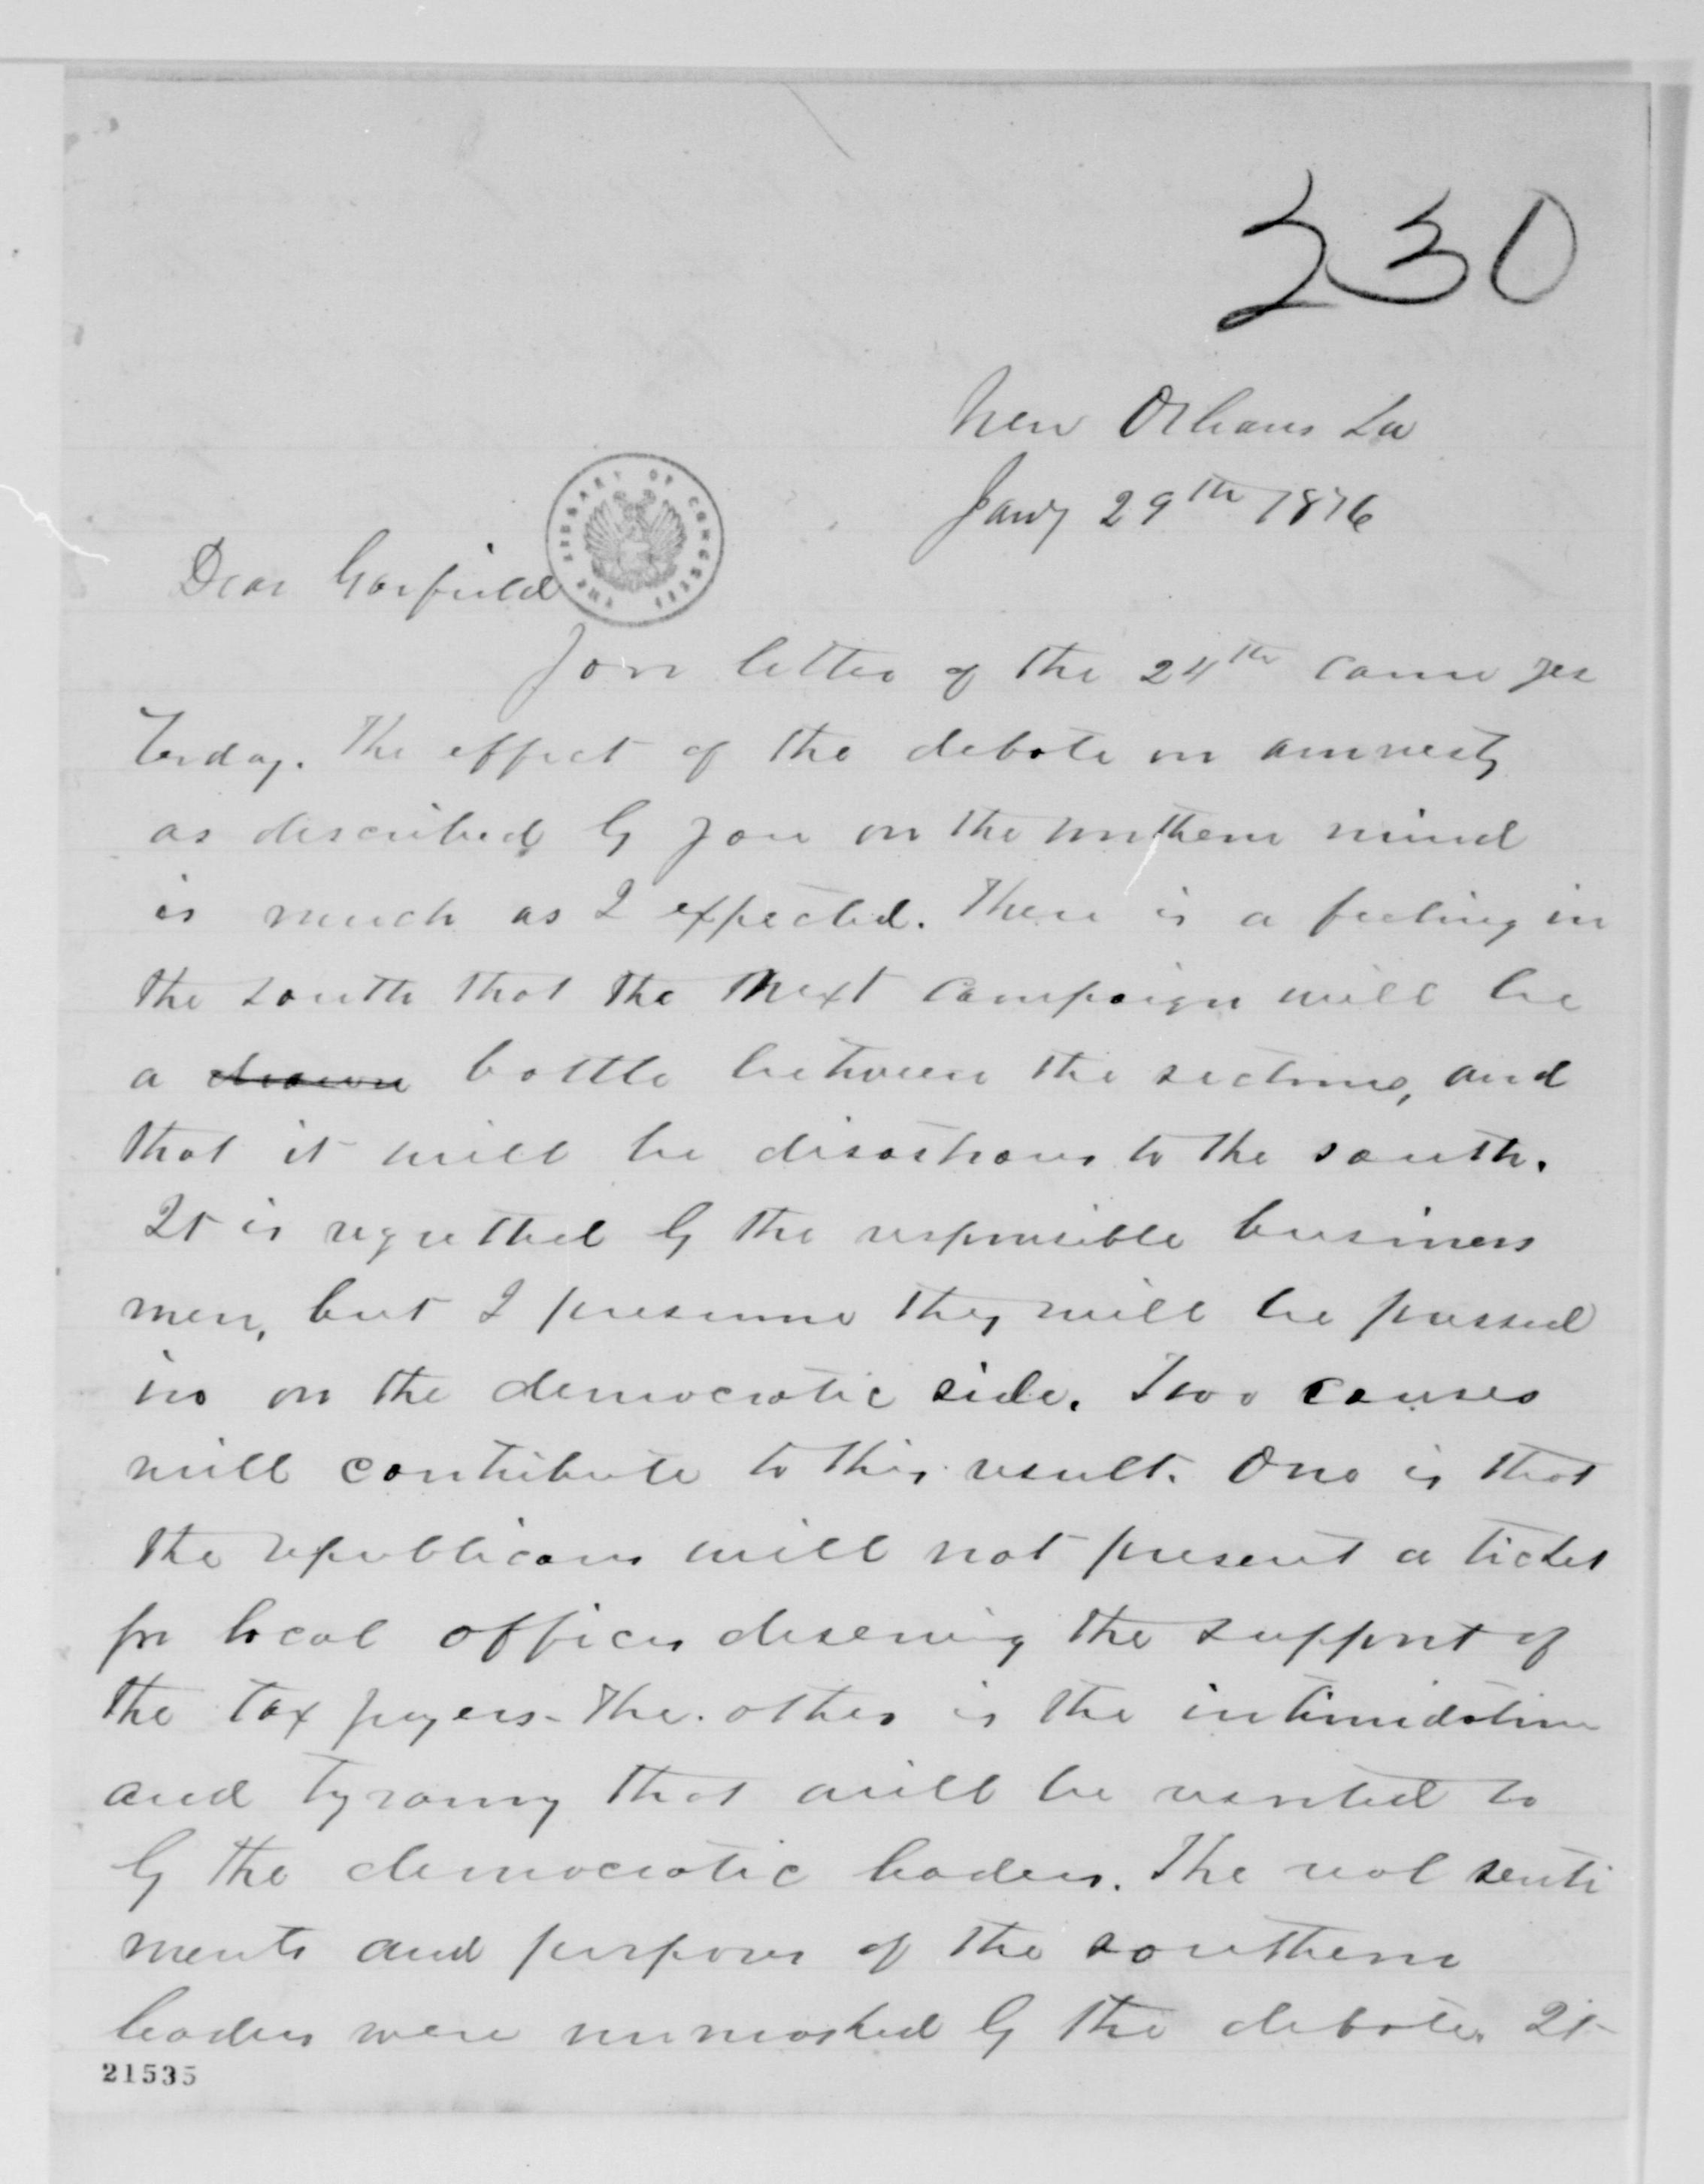 230
New Orleans La
Jany 29th 1876
THE LIBRARY OF CONGRESS
Dear Garfield
Your letter of the 24th came yes
terday. The effect of the debate on amnesty
as described by you on the northern mind
is much as I expected. There is a feeling in
the south that the next campaign will be
a drawn battle between the sections, and
that it will be disastrous to the south.
It is regretted by the responsible business
men, but I presume they will be pressed
in on the democratic side. Two causes
will contribute to this result. One is that
the republicans will not present a ticket
for local offices deserving the support of
the tax payers - The other is the intimidation
and tyranny that will be resorted to
by the democratic leaders. The real senti
ments and purposes of the southern
leaders were unmasked by the debate. It
21535